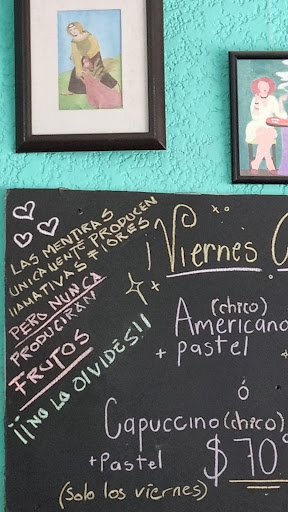 LAS MENTIRAS
UNICAMENTE PRODUCEN
LLAMATIVAS FLORES
PERO NUNCA
PRODUCIRÁN
FRUTOS
¡¡NO LO OLVIDES!!
¡Viernes
(chico)
Americano
+ pastel
ó
Capuccino (chico)
+Pastel $70
(solo los viernes)